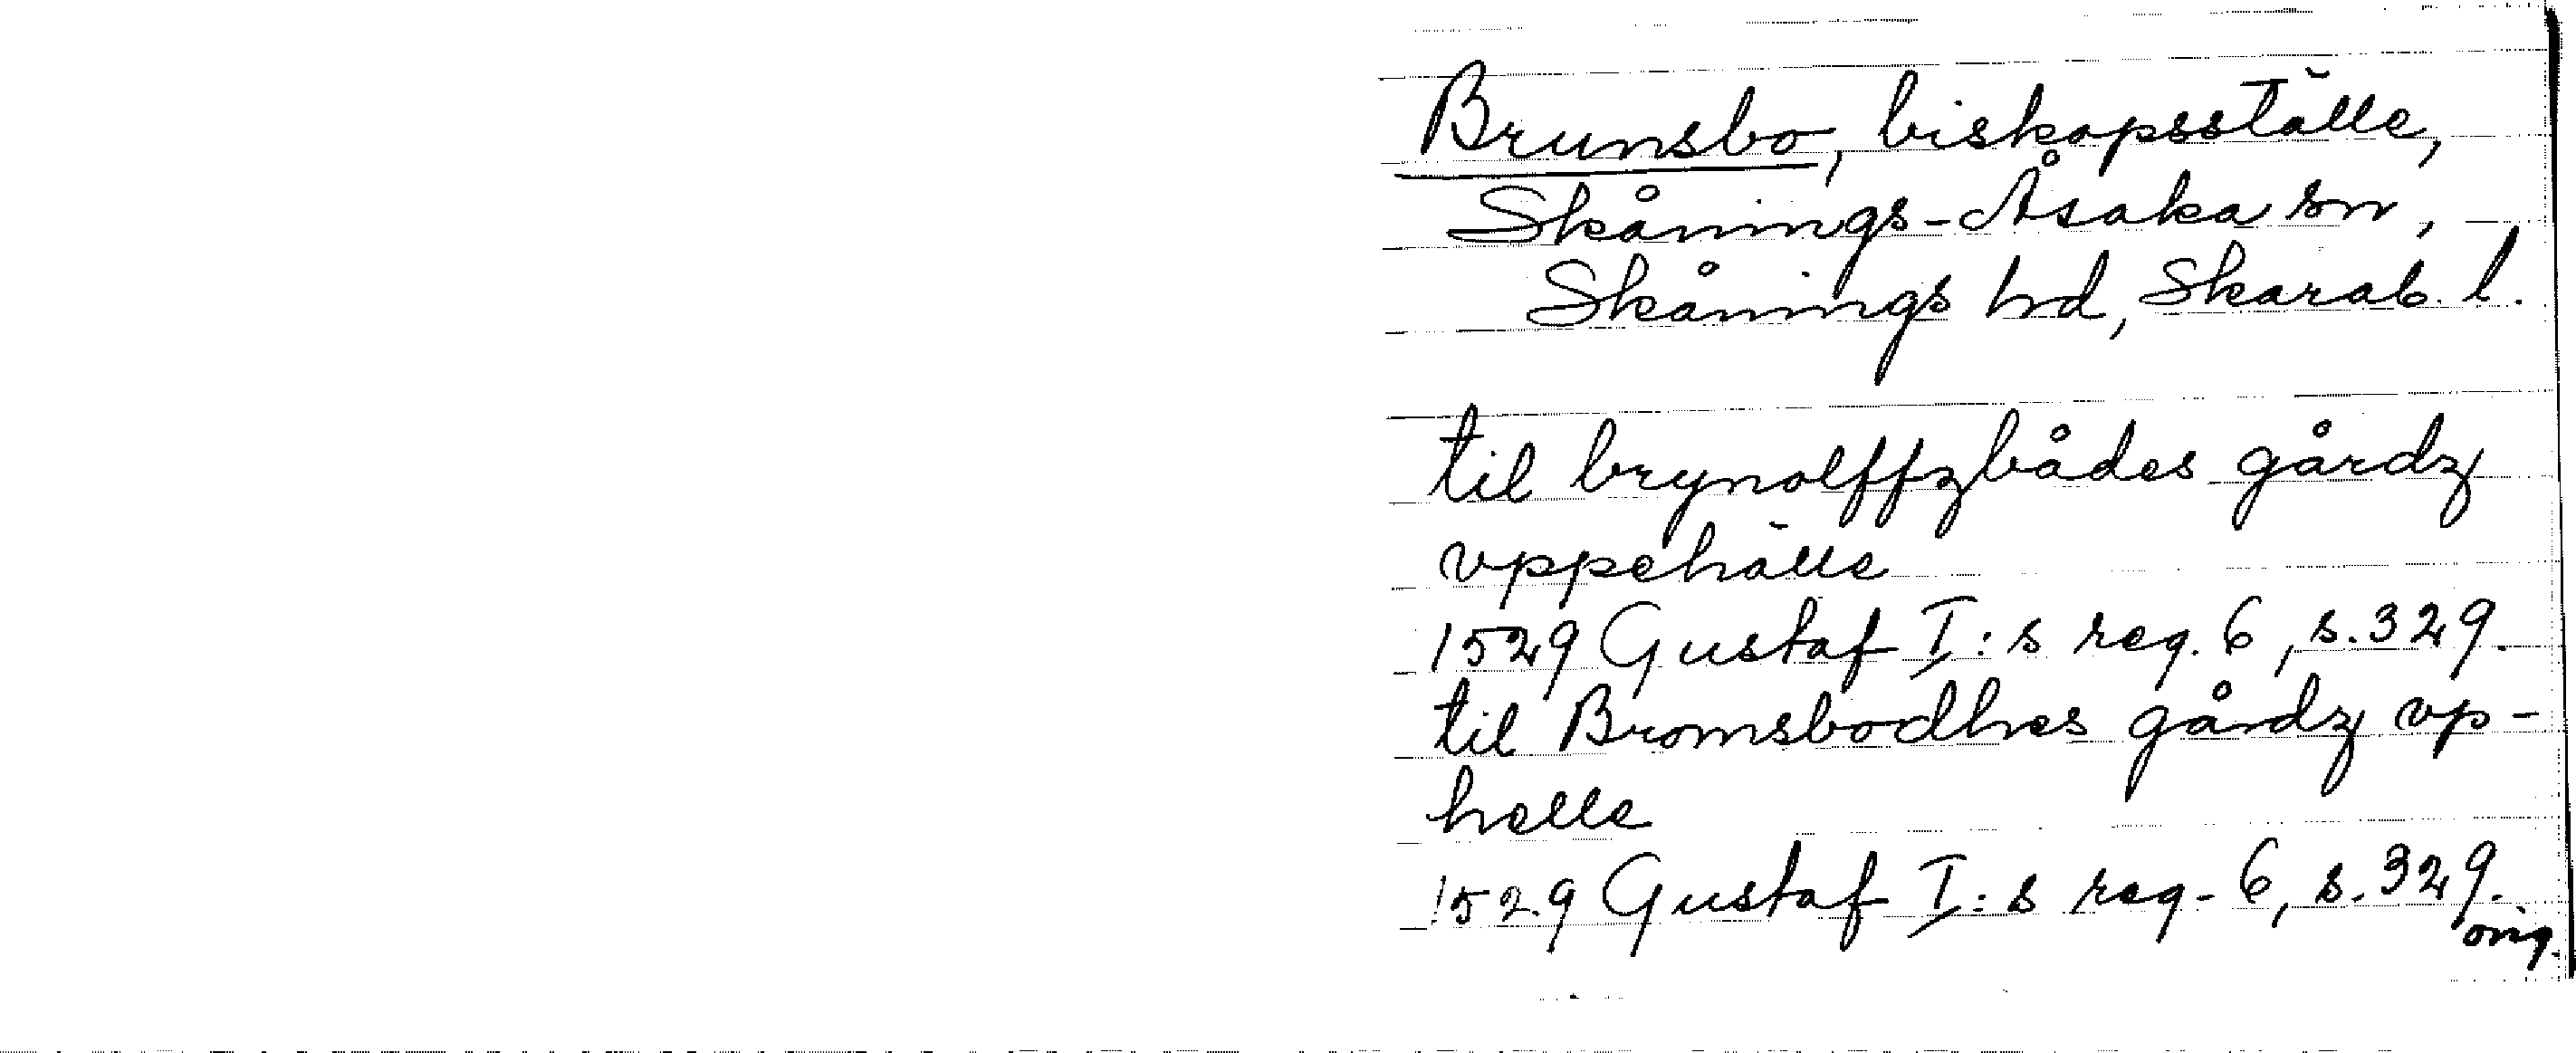 Brunsbo, biskopsställe,
Skånings-Åsaka sn,
Skånings hd, Skarab. l.
til brynolffzbådes gårdz
vppehälle
1529 Gustaf I:s reg. 6, s. 329.
til Bromsbodhes gårdz vp-
helle
1529 Gustaf I:s reg. 6, s. 329.
orig.